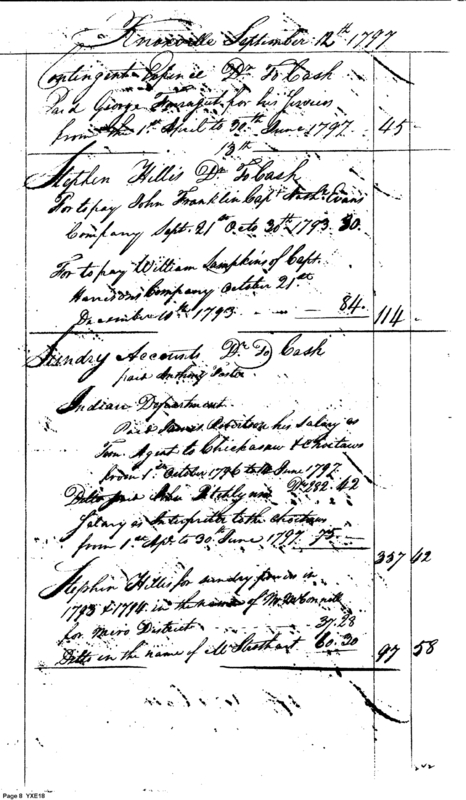 Knoxville September 12th 1797
Contingent Expence Dr To Cash
Paid George Farragut for his services
from the 1st April to 30th June 1797. 45
13th
Stephen Hillis Dr To Cash
For to pay John Franklin Capt Nathl. Evans
Company Sept. 21st Octo 30th 1793. 30.
For to pay William Lampkins of Capt.
Company October 21st
December 10th 1793 84. 114
Sundry Accounts Dr To Cash
paid Anthony Foster
Indian Department
Paid James Robertson his Salary as
Tem. Agent to Chickasaw & Choctaws
from 1st October 1796 to June 1797. Drs 282.42
Ditto paid John Pitchlynn
Salary as Interpreter to the Choctaws
from 1st Apr. to 30th June 1797 75 357 42
Stephen Hillis for sunday in
1793 & 1794. in the name of
for Mero District 37.28
Ditto in the name of 60.30 97 58
Page 8 YXE18